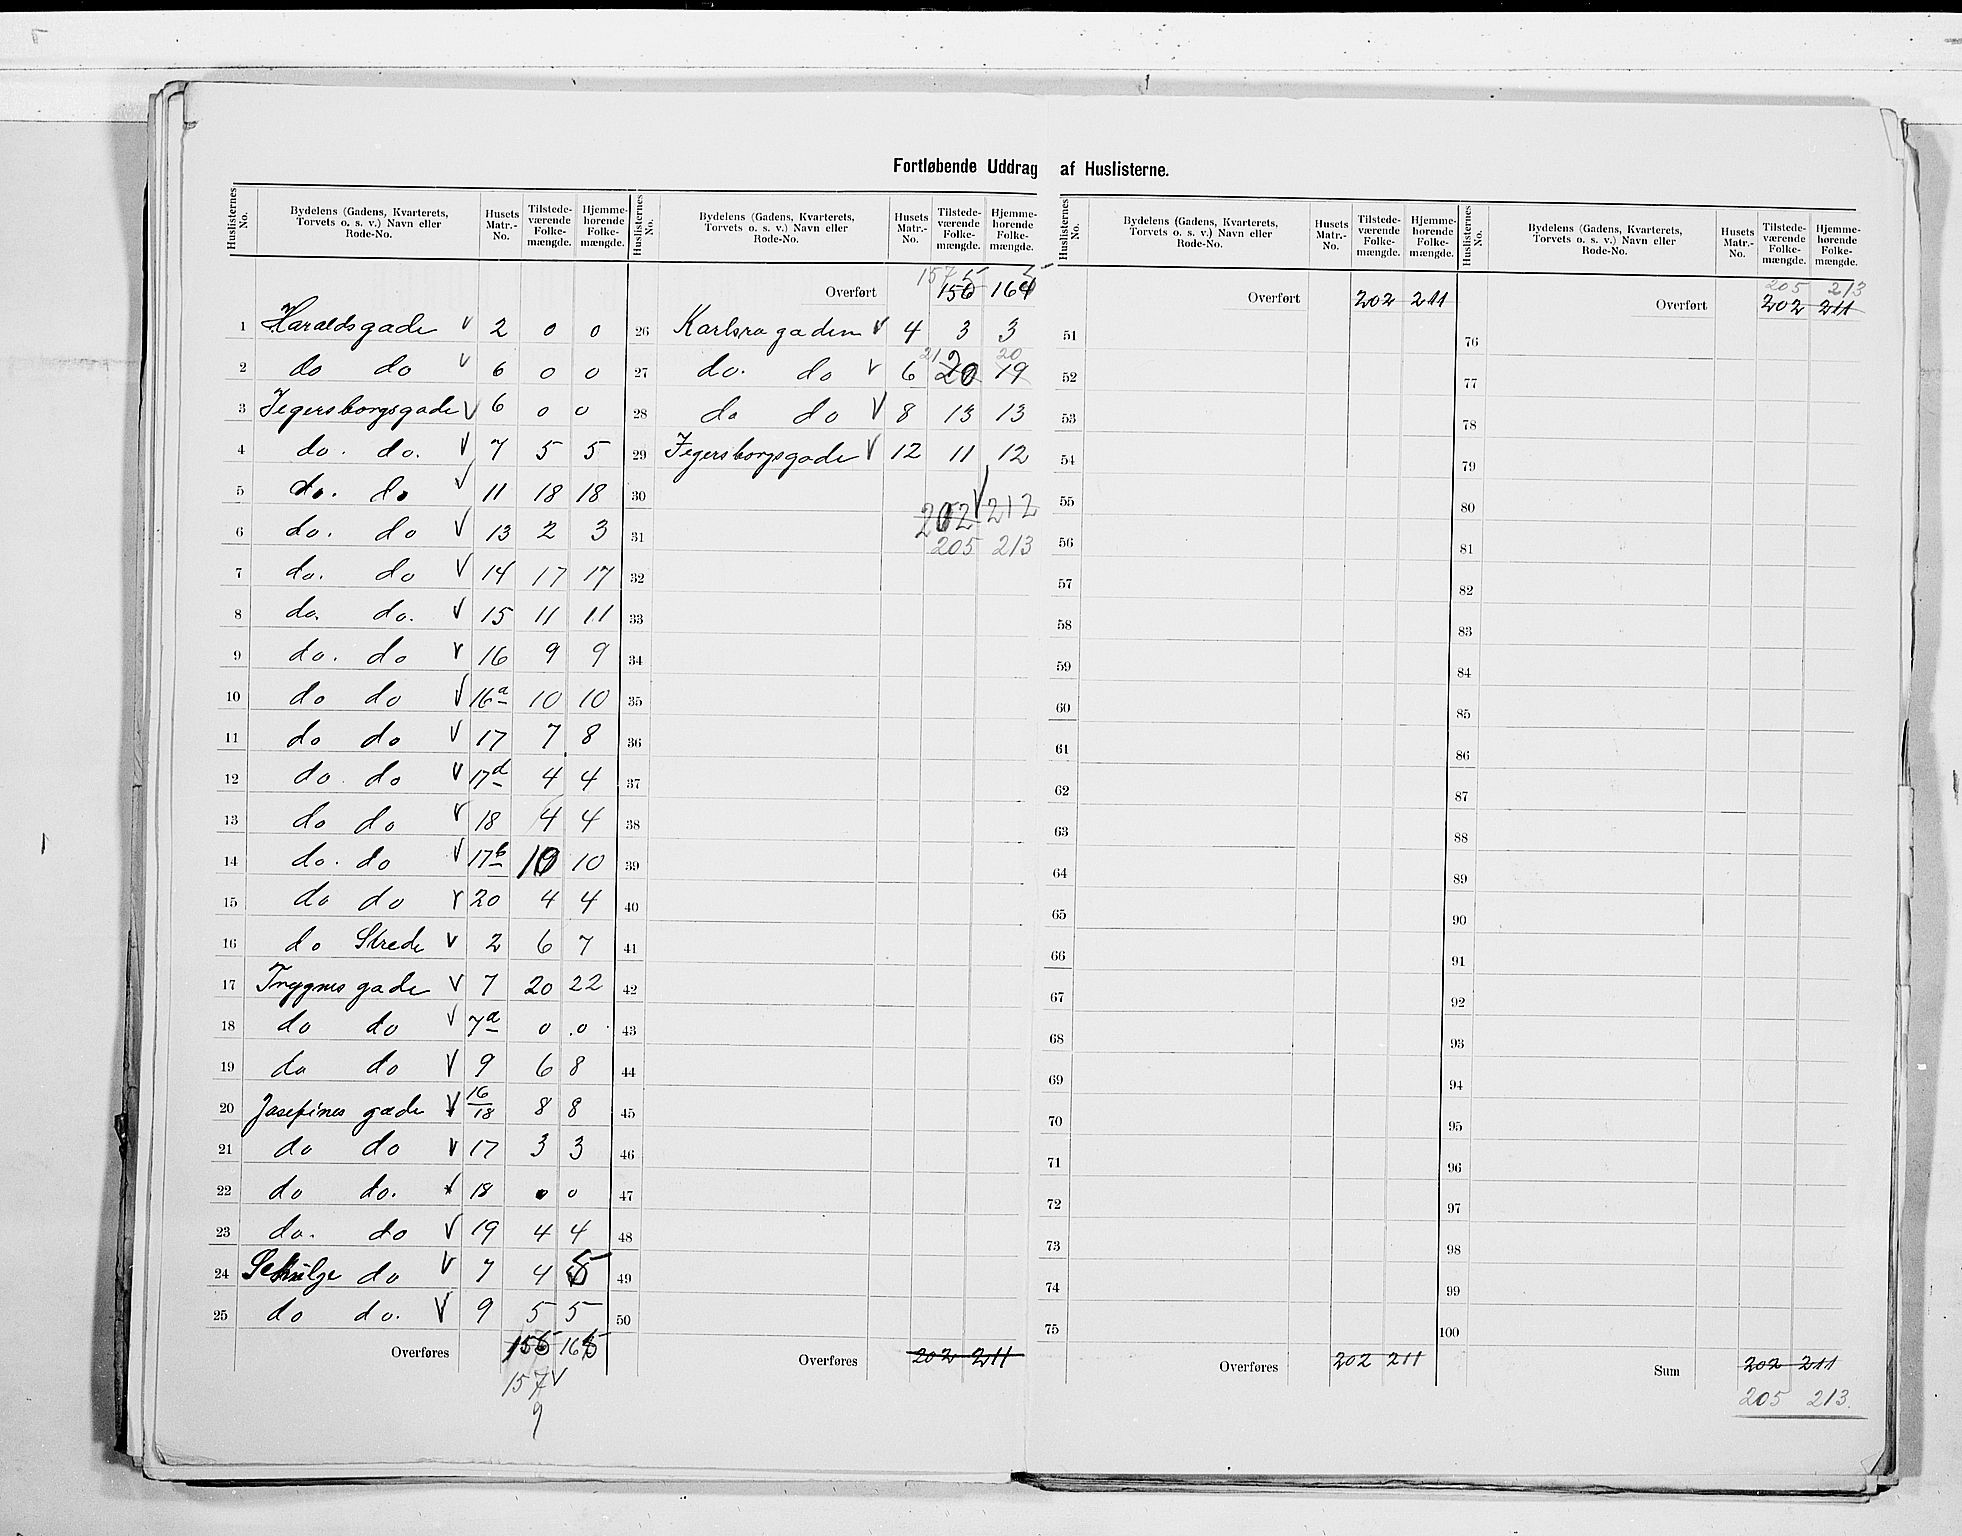 Fortløbende Uddrag af Huslisterne.
Huslisternes No. Bydelens (Gadens, Kvarterets, Torvets o. s. v.) Navn eller Rode-No. Husets Matr.-No. Tilstedeværende Folkemængde. Hjemmehørende Folkemængde.
1 Haraldsgade V 2 0 0
2 do do V 6 0 0
3 Jegersborgsgade V 6 0 0
4 do. do. V 7 5 5
5 do. do V 11 18 18
6 do. do V 13 2 3
7 do. do V 14 17 17
8 do. do. V 15 11 11
9 do. do V 16 9 9
10 do do V 16a 10 10
11 do do V 17 7 8
12 do. do V 17d 4 4
13 do do V 18 4 4
14 do. do V 17b 10 10
15 do do V 20 4 4
16 do Strede V 2 6 7
17 Trygves gade V 7 20 22
18 do do V 7a 0 0
19 do do V 9 6 8
20 Josefines gade V 16/18 8 8
21 do do V 17 3 3
22 do do. V 18 0 0
23 do. do V 19 4 4
24 do V 7 4 5
25 do do. V 9 5 5
Overføres 165
157 V
9
Huslisternes No. Bydelens (Gadens, Kvarterets, Torvets o. s. v.) Navn eller Rode-No. Husets Matr.-No. Tilstedeværende Folkemængde. Hjemmehørende Folkemængde.
157 5
Overført 156 164
26 Karlsrogaden V 4 3 3
21 20
27 do. do V 6 20 19
28 do do V 8 13 13
29 Jegersborgsgade V 12 11 12
30
202 V 212
31
205 213
32
33
34
35
36
37
38
39
40
41
42
43
44
45
46
47
48
49
50
Overføres 202 211
Huslisternes No. Bydelens (Gadens, Kvarterets, Torvets o. s. v.) Navn eller Rode-No. Husets Matr.-No. Tilstedeværende Folkemængde. Hjemmehørende Folkemængde.
Overført 202 211
51
52
53
54
55
56
57
58
59
60
61
62
63
64
65
66
67
68
69
70
71
72
73
74
75
Overføres 202 211
Huslisternes No. Bydelens (Gadens, Kvarterets, Torvets o. s. v.) Navn eller Rode-No. Husets Matr.-No. Tilstedeværende Folkemængde. Hjemmehørende Folkemængde.
205 213
Overført 202 211
76
77
78
79
80
81
82
83
84
85
86
87
88
89
90
91
92
93
94
95
96
97
98
99
100
Sum 202 211
205 213.